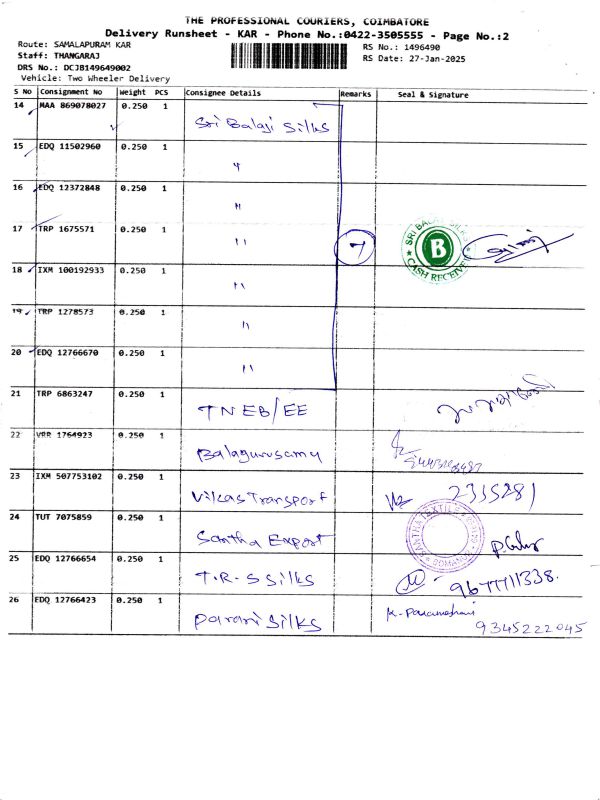 THE PROFESSIONAL COURIERS, COIMBATORE
Delivery Runsheet - KAR - Phone No.:0422-3505555 - Page No.:2
Route: SAMALAPURAM KAR
RS No.: 1496490
Staff: THANGARAJ
RS Date: 27-Jan-2025
DRS No.: DCJB149649002
Vehicle: Two Wheeler Delivery
S No Consignment No Weight PCS Consignee Details Remarks Seal & Signature
14 MAA 869078027 0.250 1 Sri Balaji Silks
15 EDQ 11502960 0.250 1 "
16 EDQ 12372848 0.250 1 "
17 TRP 1675571 0.250 1 " 7 SRI BALAJI SILKS B CASH RECEIVED
18 IXM 100192933 0.250 1 "
19 TRP 1278573 0.250 1 "
20 EDQ 12766670 0.250 1 "
21 TRP 6863247 0.250 1 TNEB/EE
22 VRR 1764923 0.250 1 Balagurusamy
23 IXM 507753102 0.250 1 Vilcas Transport 2315281
24 TUT 7075859 0.250 1 Santha Export SANTHA TEXTILE
25 EDQ 12766654 0.250 1 T.R-S Silks 9677711338.
26 EDQ 12766423 0.250 1 Parani Silks K. Parameshwari
9345222045